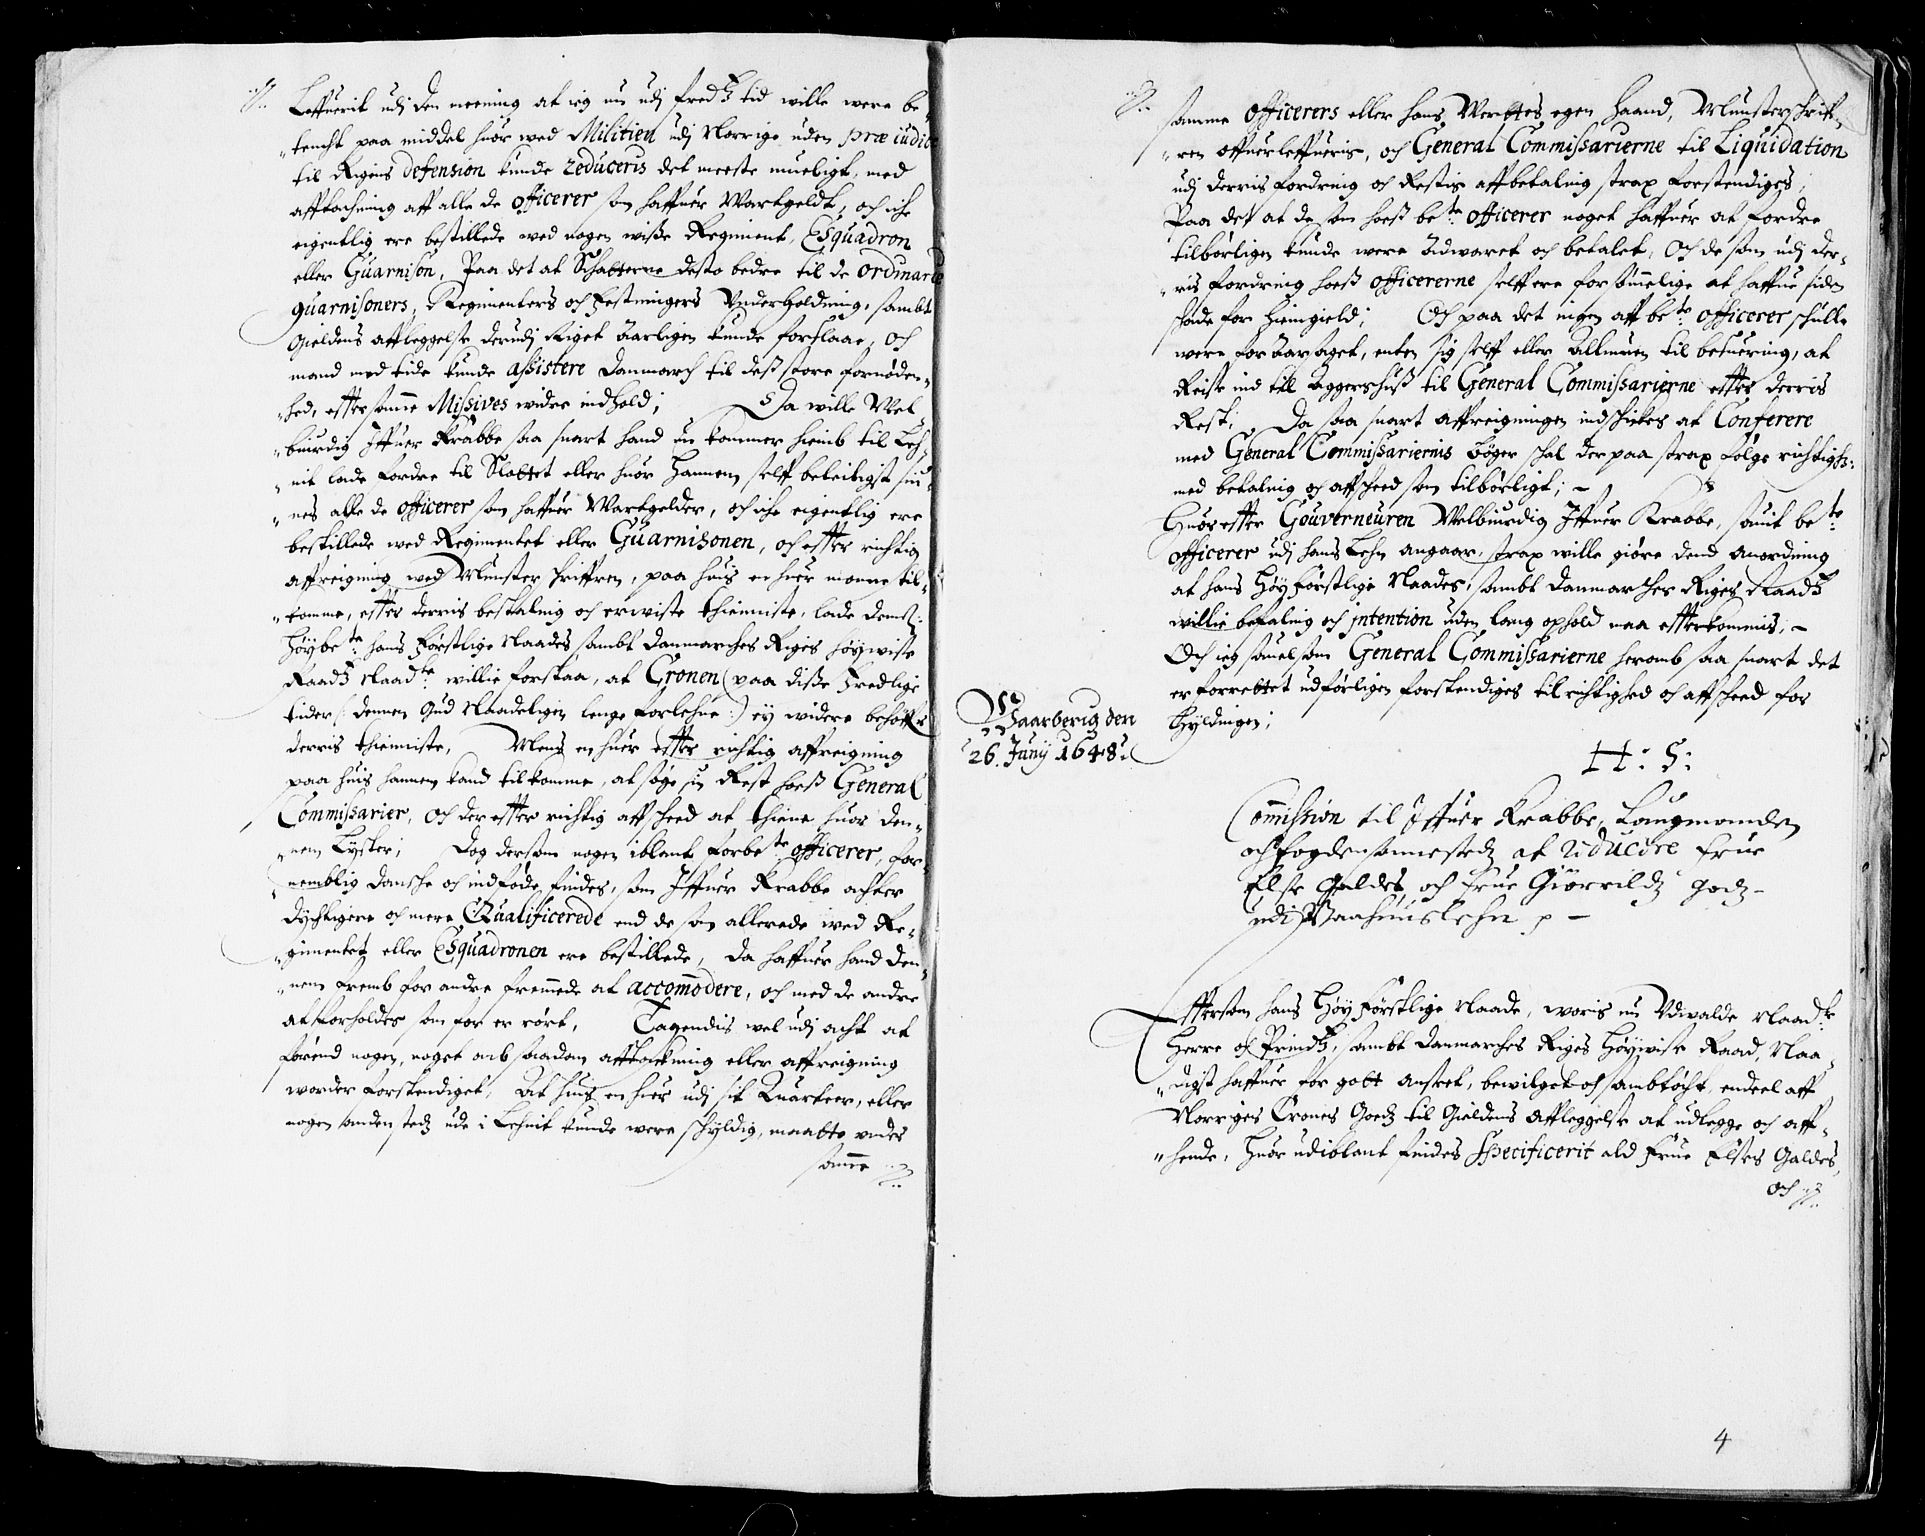 Leffuerit udj den meening at ieg nu udj fredtz tid wille were be-
"tencht paa middel huor wed Militien udj Norrige uden præ iudice
til Rigens defension kunde reduceris det meeste mueligt, med
afftachning aff alle de officerer som haffuer Wartgeldt, och iche
eigentlig ere bestillede wed nogen wiße Regiment, Esquadron
eller Guarnison, Paa det at Schatterne desto bedre til de ordinarie
guarnisoners, Regimenters och festningers Underholdning, sambt
Gieldens affleggelse derudj Riget Aarligen kunde forslaae, och
mand med tide kunde assistere Danmarch til deß store fornøden-
"hed, effter samme Missives wider indhold; Da wille Wel-
"buurdig Iffuer Krabbe saa snart hand nu kommer hiemb til Leh-
"nit lade fordre til Slottet eller huor hannem self beleiligst siu-
"nes alle de officerer som haffuer Wartgelder, och iche eigentlig ere
bestillede wed Regimentet eller Guarnisonen, och effter richtig
affreigning wed Munster schriffren, paa huis en huer monne til-
"komme, effter derris bestalning och erwiste thienniste, lade dem
høybete hans Førstlige Naades sambt Danmarches Riges høywise
Raadtz Naadte willie forstaa, at Cronen (paa diße Fredlige
tider (: dennem Gud Naadeligen lenge forlehne :) ey widere behøffr
derris thienniste, Mens en huer effter richtig affreigning
paa huis hannem kand tilkomme, at søge sin Rest hoeß General
Commissarier, och der effter richtig affscheed at thiene huor den-
"nem Lyster; Dog dersom nogen iblant forbete officerer, for-
"nemblig Dansche och indføde findes, som Iffuer Krabbe achter
dychtigere och mere Qualificerede end de som allerede wed Re-
"gimentet eller Esquadronen ere bestillede, da haffuer hand den-
"nem fremb for andre fremmede at accomodere, och med de andre
at forholdes som for er rørt, Tagendis wel udj acht at
førend nogen, noget omb saadan afftachning eller affreigning
worder forstendiget, At huis en huer udj sit Quarteer, eller
nogen anden stedz ude i Lehnit kunde were schyldig, maatte under
samme
samme officerers eller hans Werttes egen haand, Munsterschriff-
"ren offuerleffueris, och General Commissarierne til Liquidation
udj derris fordring och Restis affbetaling strax forstendiges;
Paa det at de som hoeß bete officerer noget haffuer at fordre
tilbørligen kunde were adwaret och betalet, och de som udj der-
"ris fordring hoeß officererne self ere forsømmelige at haffue siden
schade for hiemgield; Och paa det ingen aff bete officerer schulle
were foraarsaget, enten sig self eller Allmuen til besuering, at
Reise ind till Aggershuß til General Commissarierne effter derris
Rest; Da saa snart affreigningen indschickes at Conferere
med General Commissariernis bøger schal der paa strax følge richtighed
med betaling och affscheed som tilbørligt; -
Huor effter Gouverneuren Welbiurdig Iffuer Krabbe, sauit bete
officerer udj hans Lehn angaar, strax wille giøre dend anordning
at hans Høy Førstlige Naades, sambt Danmarches Riges Raadtz
willie befaling och intention uden lang ophold maa effterkommis, -
Och ieg sauelsom General Commissarierne heromb saa snart det
er forrettet udførligen forstendiges til richtighed och affscheed for
Schyldingen;
Waarberig den
26. Junij 1648.
H: S:
Commission til Iffuer Krabbe, Laugmanden
och fogden sammestedz at reducere Frue
Else Galdes och Frue Giørrildz godz
udi Baahuuslehn p -
Effterson hans Høy Førstlige Naade, woris nu Udwalde Naadte
Herre och Prindtz, sambt Danmarches Riges Høywise Raad, Naa-
"digst haffuer for gott anseet, bewilget och sambtøcht, endeel aff
Norriges Crones Goedz til Gieldens affleggelse at udlegge och aff-
"hende, huor udiblant findes Specificerit ald Frue Elses Galdes,
och
4